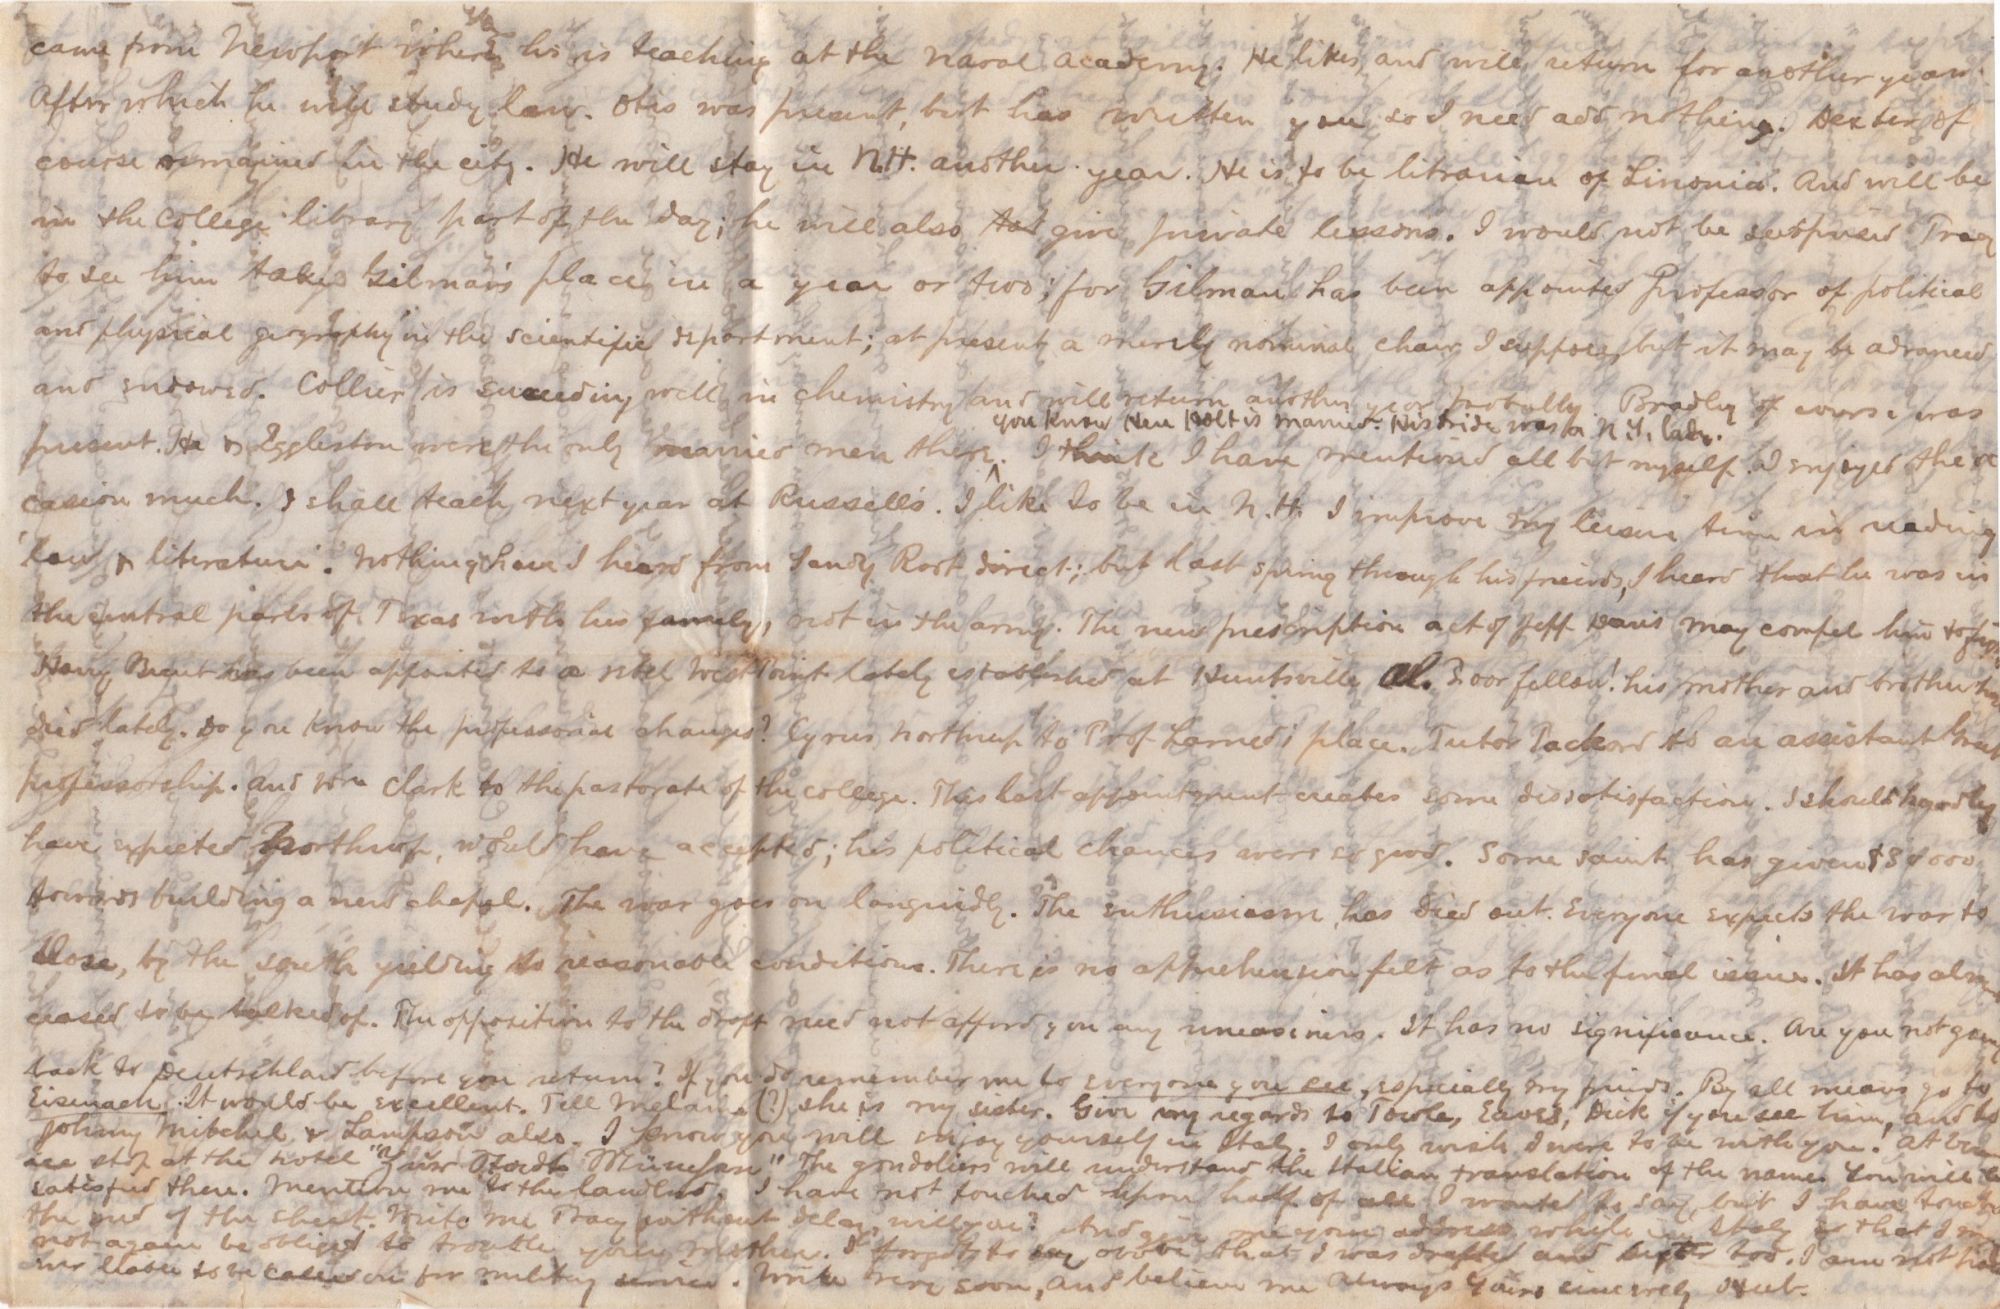 came from Newport where his is teaching at the naval academy. He likes, and will return for another year.
After which he will study law. Otis was present, but has written you so I need add nothing. Dexter of
course remained in the city. He will stay in N.H. another year. He is to be librarian of Linonia. And will be
in the college library part of the day; he will also give private lessons. I would not be surprised Tracy
to see him take Gilman's place in a year or two; for Gilman has been appointed Professor of political
and physical geography in the scientific department; at present a merely nominal chair I suppose, but it may be advanced
and endowed. Collier is succeeding well in chemistry and will return another year probably. Bradley of course was
you know Hen Holt is married. His bride was a N.Y. lady.
present. He & Eggleston were the only married men there. I think I have mentioned all but myself. I enjoyed the oc
casion much. I shall teach next year at Russell's. I like to be in N.H. I improve my leisure time in reading
law & literature. Nothing have I heard from Sandy Root direct; but last spring through his friends, I heard that he was in
the central parts of Texas with his family, not in the army. The new prescription act of Jeff Davis may compel him to fight
Harry Brent has been appointed to a rebel West Point lately established at Huntsville Al. Poor fellow! his mother and brother have
died lately. Do you know the professorial changes? Cyrus Northrup to Prof Larned's place. Tutor Packard to an assistant Greek
professorship. And Clark to the pastorate of the college. This last appointment creates some dissatisfaction. I should hardly
have expected Northrop, would have accepted; his political chances were so good. Some saint has given $30000
towards building a new chapel. The war goes on languidly. The enthusiasm has died out. Everyone expects the war to
close, by the south yielding to reasonable conditions. There is no apprehension felt as to the final issue. It has almost
ceased to be talked of. The opposition to the draft need not afford you any uneasiness. It has no significance. Are you not going
back to Deutschland before you return? If you do remember me to everyone you see, especially my friends. By all means go to
Eisenach. It would be excellent. Tell Melanie (?) she is my sister. Give my regards to Towle, Eaves, Dick if you see him, and to
Johnny Mitchel & Lampson also. I know you will enjoy yourself in Italy. I only wish I were to be with you! At Ven
ice stop at the hotel "Zur Stadt München" The gondoliers will understand the Italian translation of the name. You will be
satisfied there. Mention me to the landlord. I have not touched upon half of all I wanted to say, but I have touched
the end of the sheet. Write me Tracy without delay, will you? And give me your address while in Italy so that I may
not again be obliged to trouble your mother. I forgot to say above that I was drafted and too. I am not
ever liable to be called on for military service. Write very soon, and believe me always Yours sincerely Hub.